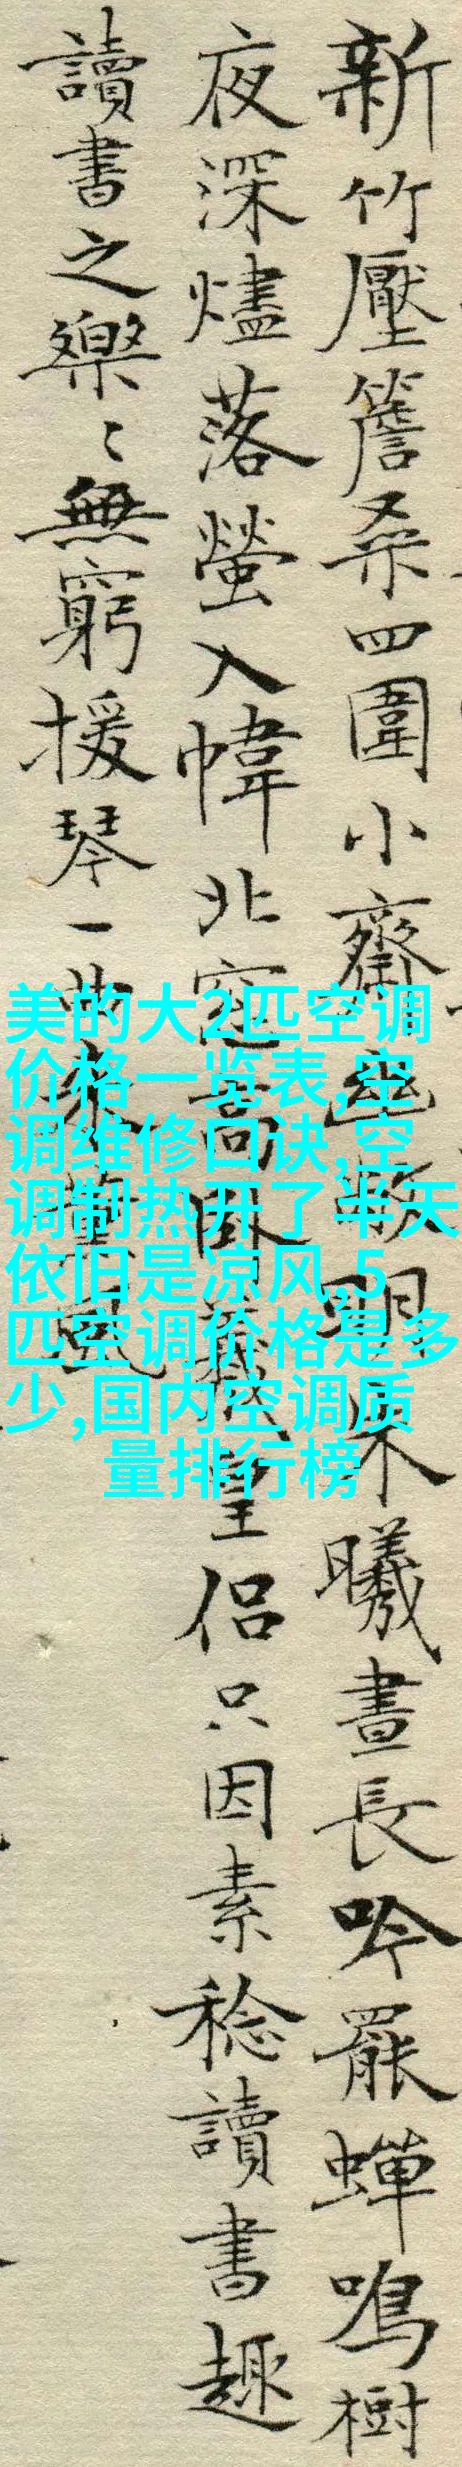 新竹壓簷桑四圍小齋幽敞明朱曦晝長吟罷蟬鳴樹
夜深燼落螢入幃北窓高卧羲皇侶只因素稔讀書趣
讀書之樂〻無窮援琴一曲來薰風
美的大2匹空调
价格一览表,空
调维修口诀,空
调制热开了半天
依旧是凉风,5
匹空调价格是多
少,国内空调质
量排行榜